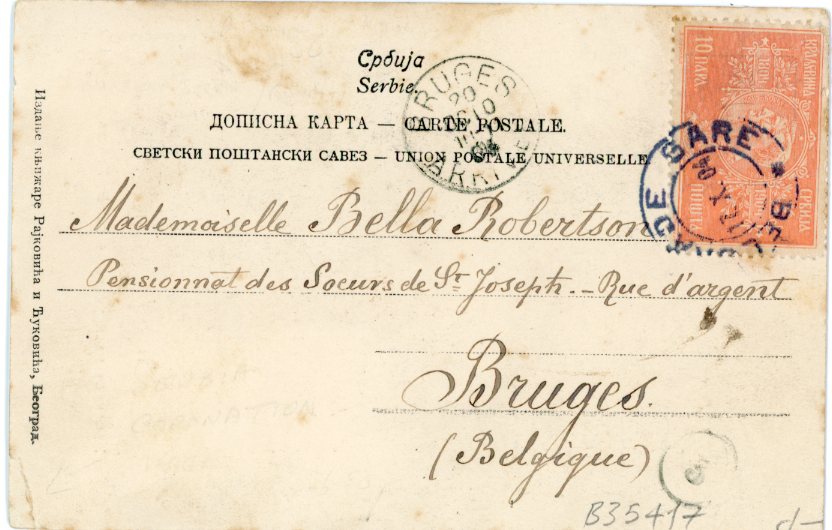 Србија
Serbie.
ДОПИСНА КАРТА — CARTE POSTALE.
СВЕТСКИ ПОШТАНСКИ САВЕЗ — UNION POSTALE UNIVERSELLE.
Mademoiselle Bella Robertson
Pensionnat des Soeurs de St Joseph. - Rue d'argent
Bruges.
(Belgique)
B35417
Издање књижаре Рајковића и Ђуковића, Београд.
BRUGES
20
10
GARE
10 ПАРА
СРБИЈА